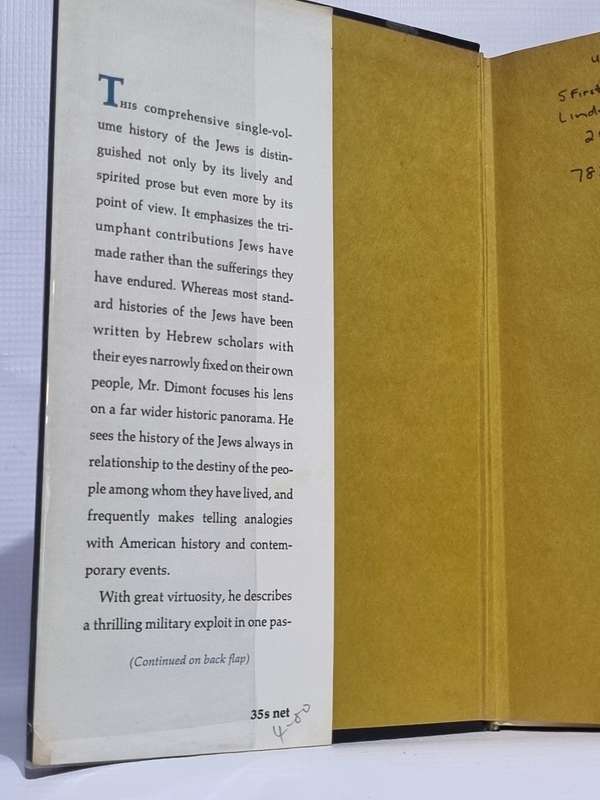 THIS comprehensive single-vol-
ume history of the Jews is distin-
guished not only by its lively and
spirited prose but even more by its
point of view. It emphasizes the tri-
umphant contributions Jews have
made rather than the sufferings they
have endured. Whereas most stand-
ard histories of the Jews have been
written by Hebrew scholars with
their eyes narrowly fixed on their own
people, Mr. Dimont focuses his lens
on a far wider historic panorama. He
sees the history of the Jews always in
relationship to the destiny of the peo-
ple among whom they have lived, and
frequently makes telling analogies
with American history and contem-
porary events.
With great virtuosity, he describes
a thrilling military exploit in one pas-
(Continued on back flap)
35s net
5 First
78